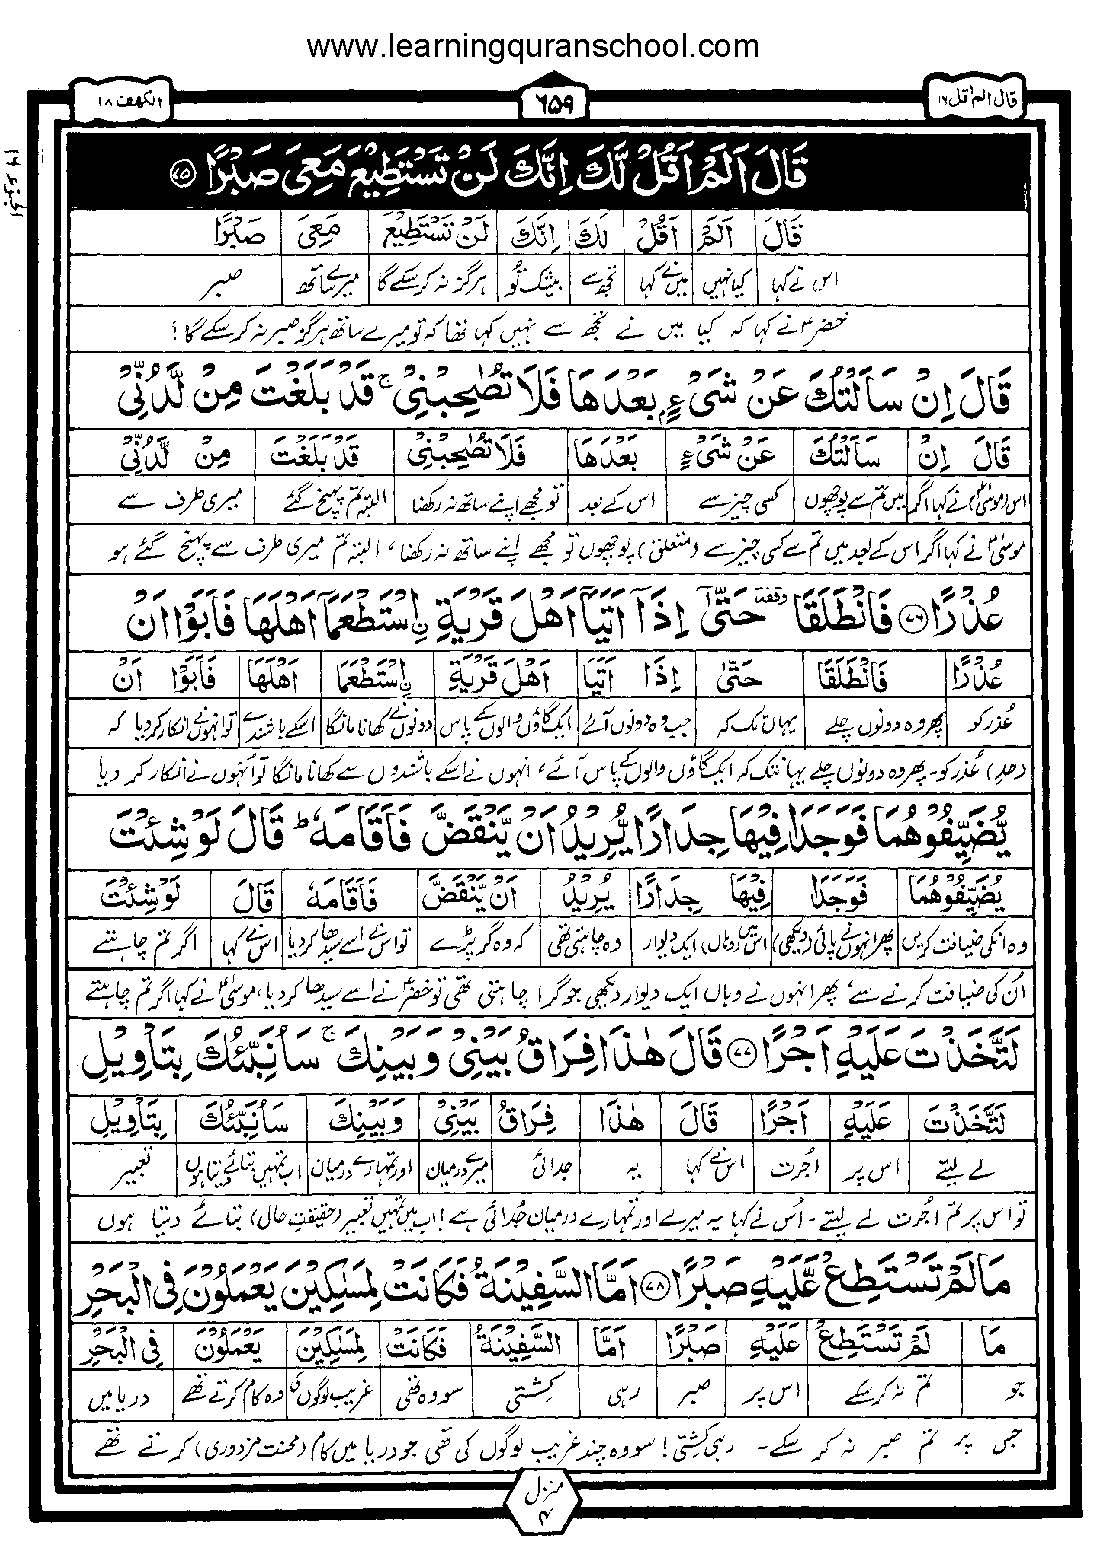 www.learningquranschool.com
قال الم اقل ۱۶
۶۵۹
الکھف ۱۸
الجزء ۱۶
قَالَ اَلَمْ اَقُلْ لَّكَ اِنَّكَ لَنْ تَسْتَطِيْعَ مَعِيَ صَبْرًا ۷۵
قَالَ اَلَمْ اَقُلْ لَكَ اِنَّكَ لَنْ تَسْتَطِيْعَ مَعِيَ صَبْرًا
اس نے کہا کیا نہیں میں نے کہا تجھ سے بیشک تُو ہرگز نہ کر سکے گا میرے ساتھ صبر
خضرؑ نے کہا کہ کیا میں نے تجھ سے نہیں کہا تھا کہ تو میرے ساتھ ہرگز صبر نہ کر سکے گا؟
قَالَ اِنْ سَاَلْتُكَ عَنْ شَيْءٍۭ بَعْدَهَا فَلَا تُصٰحِبْنِيْ ۚ قَدْ بَلَغْتَ مِنْ لَّدُنِّيْ
قَالَ اِنْ سَاَلْتُكَ عَنْ شَيْءٍ بَعْدَهَا فَلَا تُصٰحِبْنِيْ قَدْ بَلَغْتَ مِنْ لَّدُنِّيْ
اس (موسیٰؑ) نے کہا اگر میں تم سے پوچھوں کسی چیز سے اس کے بعد تو مجھے اپنے ساتھ نہ رکھنا البتہ تم پہنچ گئے میری طرف سے
موسیٰؑ نے کہا اگر اس کے بعد میں تم سے کسی چیز سے (متعلق) پوچھوں تو مجھے اپنے ساتھ نہ رکھنا، البتہ تم میری طرف سے پہنچ گئے ہو
عُذْرًا ۷۶ فَانْطَلَقَا وقفة حَتّٰٓى اِذَآ اَتَيَآ اَهْلَ قَرْيَةِ ࣙاسْتَطْعَمَآ اَهْلَهَا فَاَبَوْا اَنْ
عُذْرًا فَانْطَلَقَا حَتّٰى اِذَآ اَتَيَآ اَهْلَ قَرْيَةِ ࣙاسْتَطْعَمَآ اَهْلَهَا فَاَبَوْا اَنْ
عُذر کو پھر وہ دونوں چلے یہاں تک کہ جب وہ دونوں آئے ایک گاؤں والوں کے پاس دونوں نے کھانا مانگا اسکے باشندے تو انہوں نے انکار کر دیا کہ
(حد) عُذر کو۔ پھر وہ دونوں چلے یہانتک کہ ایک گاؤں والوں کے پاس آئے، انہوں نے اسکے باشندوں سے کھانا مانگا تو اُنہوں نے انکار کر دیا
يُّضَيِّفُوْهُمَا فَوَجَدَا فِيْهَا جِدَارًا يُّرِيْدُ اَنْ يَّنْقَضَّ فَاَقَامَهٗ ؕ قَالَ لَوْ شِئْتَ
يُضَيِّفُوْهُمَا فَوَجَدَا فِيْهَا جِدَارًا يُرِيْدُ اَنْ يَّنْقَضَّ فَاَقَامَهٗ قَالَ لَوْ شِئْتَ
وہ انکی ضیافت کریں پھر انہوں نے پائی (دیکھی) اس میں (وہاں) ایک دیوار وہ چاہتی تھی کہ وہ گر پڑے تو اس نے اسے سیدھا کر دیا اس نے کہا اگر تم چاہتے
اُن کی ضیافت کرنے سے، پھر انہوں نے وہاں ایک دیوار دیکھی جو گرا چاہتی تھی تو خضرؑ نے اسے سیدھا کر دیا، موسیٰؑ نے کہا اگر تم چاہتے
لَتَّخَذْتَ عَلَيْهِ اَجْرًا ۷۷ قَالَ هٰذَا فِرَاقُ بَيْنِيْ وَبَيْنِكَ ۚ سَاُنَبِّئُكَ بِتَاْوِيْلِ
لَتَّخَذْتَ عَلَيْهِ اَجْرًا قَالَ هٰذَا فِرَاقُ بَيْنِيْ وَبَيْنِكَ سَاُنَبِّئُكَ بِتَاْوِيْلِ
لے لیتے اس پر اُجرت اس نے کہا یہ جدائی میرے درمیان اور تمہارے درمیان اب تمہیں بتائے دیتا ہوں تعبیر
تو اس پر تم اُجرت لے لیتے۔ اُس نے کہا یہ میرے اور تمہارے درمیان جُدائی ہے! اب میں تمہیں تعبیر (حقیقتِ حال) بتائے دیتا ہوں
مَا لَمْ تَسْتَطِعْ عَّلَيْهِ صَبْرًا ۷۸ اَمَّا السَّفِيْنَةُ فَكَانَتْ لِمَسٰكِيْنَ يَعْمَلُوْنَ فِي الْبَحْرِ
مَا لَمْ تَسْتَطِعْ عَلَيْهِ صَبْرًا اَمَّا السَّفِيْنَةُ فَكَانَتْ لِمَسٰكِيْنَ يَعْمَلُوْنَ فِي الْبَحْرِ
جو تم نہ کر سکے اس پر صبر رہی کشتی سو وہ تھی غریب لوگوں کی وہ کام کرتے تھے دریا میں
جس پر تم صبر نہ کر سکے۔ رہی کشتی! سو وہ چند غریب لوگوں کی تھی جو دریا میں کام (محنت مزدوری) کرتے تھے
منزل ۴